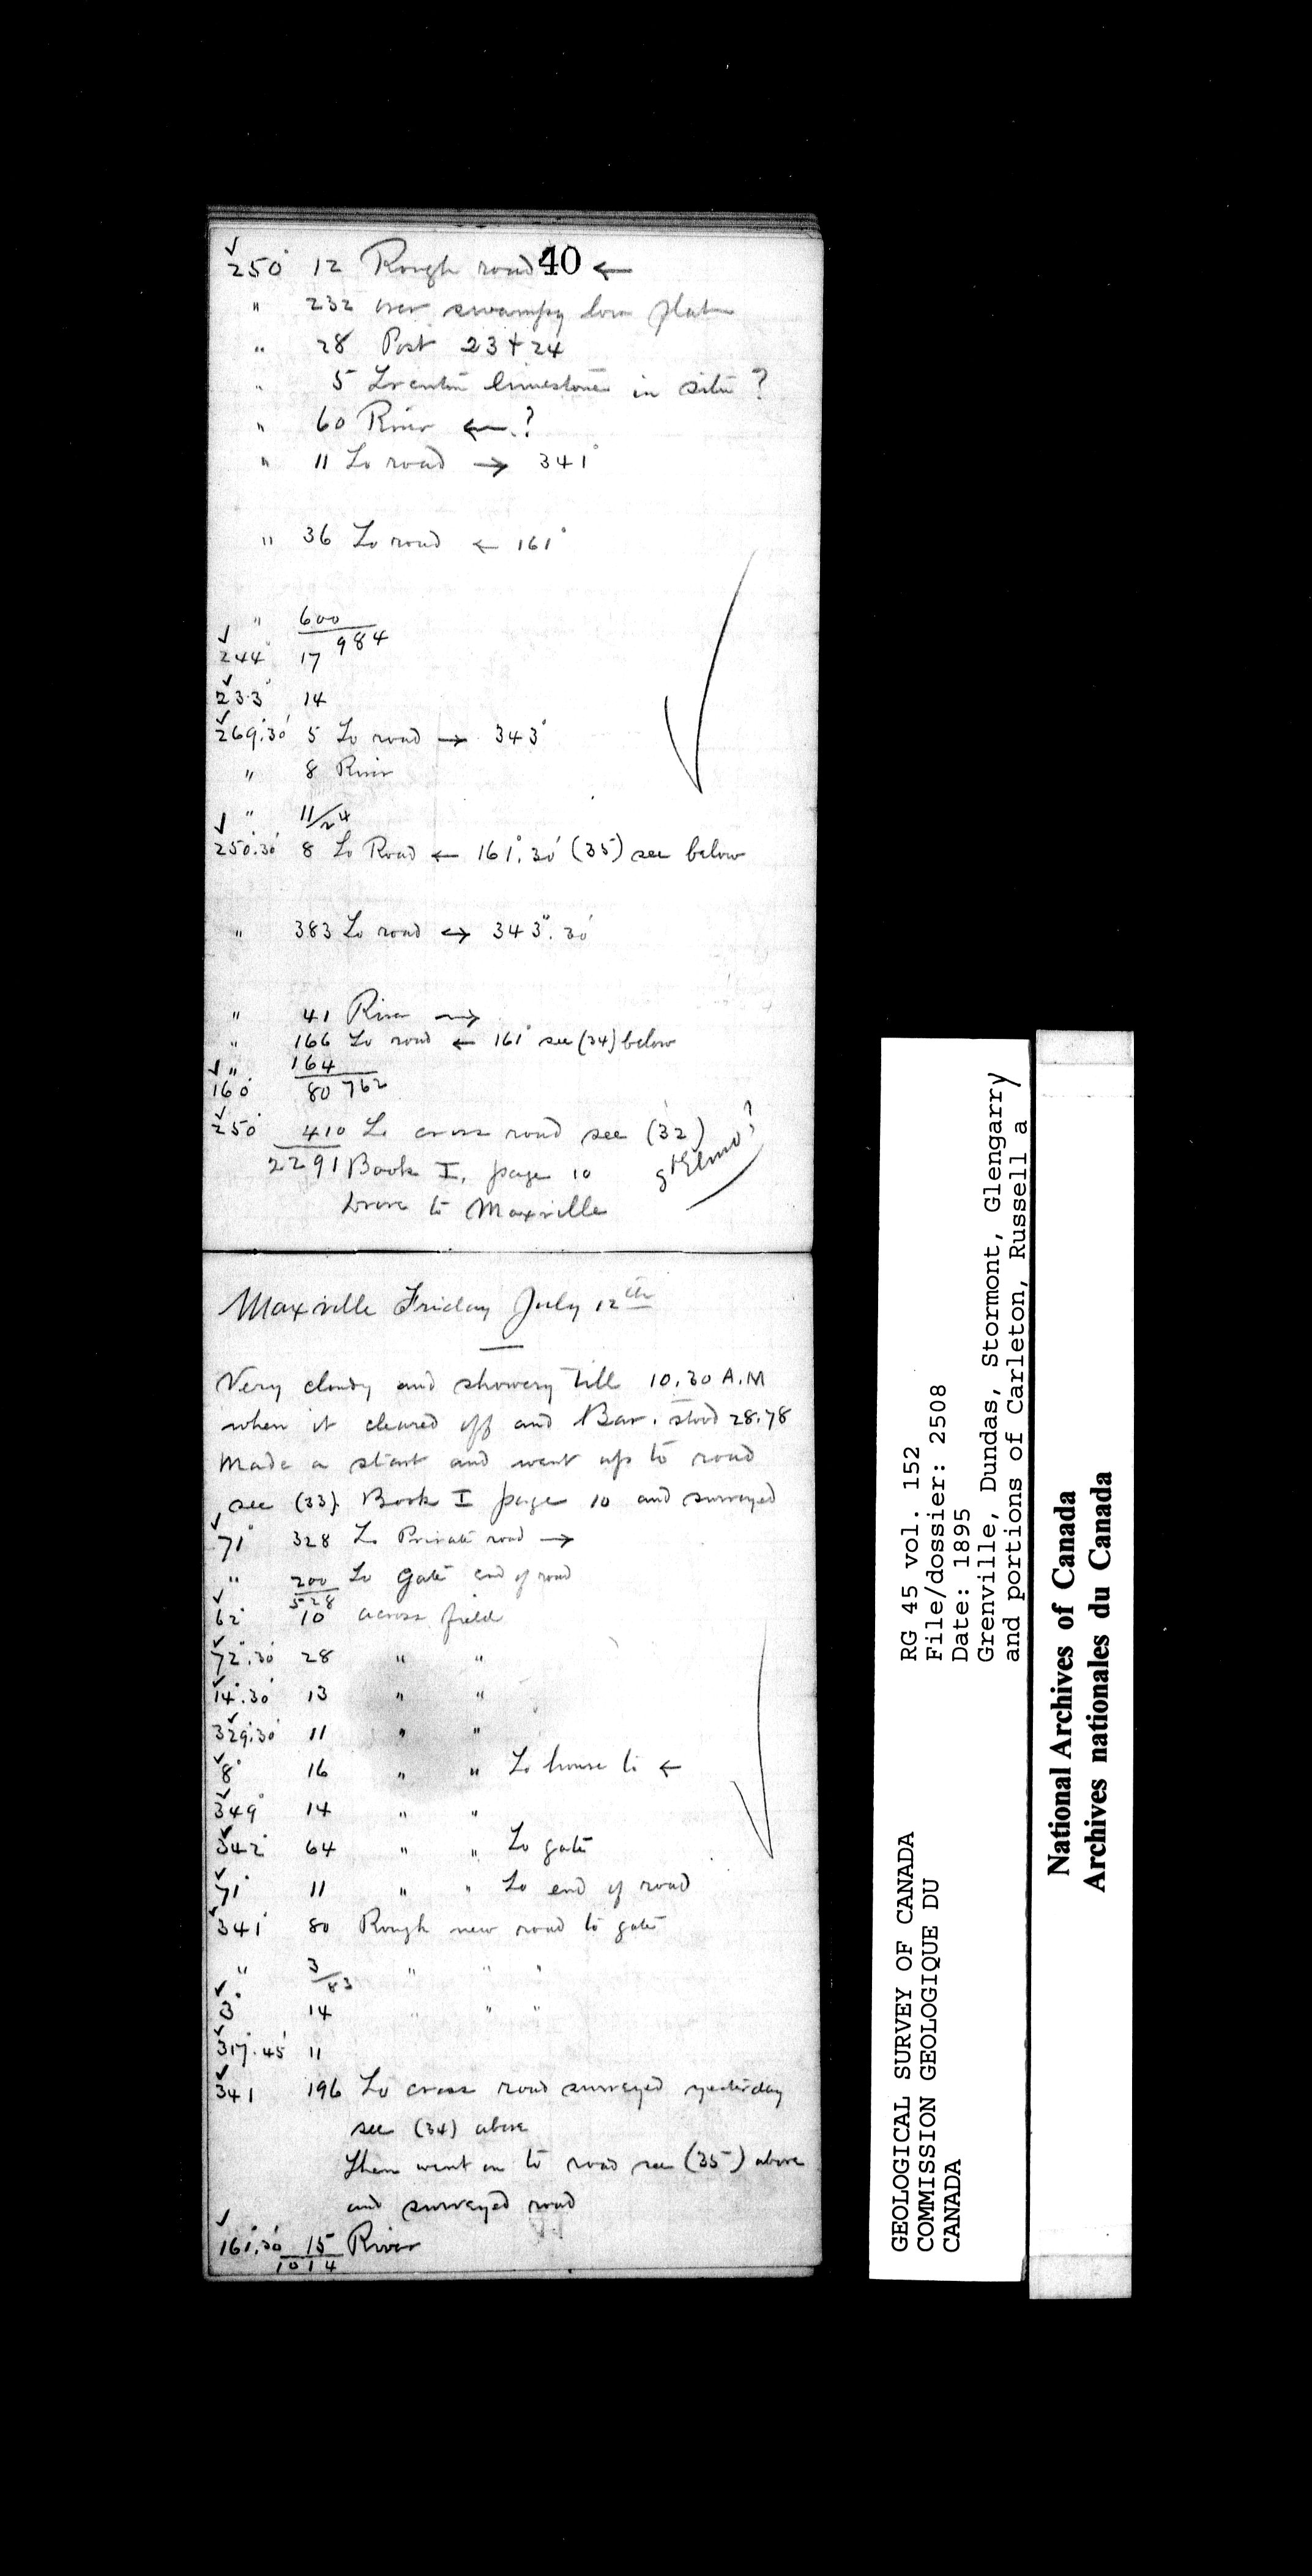 40
250° 12 Rough road ←
" 232 over swampy low flat
" 28 Post 23+24
" 5 Trenton limestone in situ ?
" 60 River ← ?
" 11 To road → 341°
" 36 To road ← 161°
" 600
984
244° 17
233° 14
269°.30' 5 To road → 343°
" 8 River
" 11/24
250°.30' 8 To Road ← 161°.30' (35) see below
" 383 To road ↔ 343°.30'
" 41 River →
" 166 To road ← 161° see (34) below
" 164
762
160° 80
250° 410 To cross road see (32)
2291 Book I, page 10 St Elmo?
Drove to Maxville
Maxville Friday July 12th
Very cloudy and showery till 10.30 A.M
when it cleared off and Bar. stood 28.78
Made a start and went up to road
see (33) Book I page 10 and surveyed
71° 328 To Private road →
" 200 To Gate end of road
528
62° 10 across field
72°.30' 28 " "
14°.30' 13 " "
329°.30' 11 " "
8° 16 " " To house to ←
349° 14 " "
342° 64 " " To gate
71° 11 " " To end of road
341° 80 Rough new road to gate
" 3/83 " " "
3° 14 " " "
317°.45' 11
341 196 To cross road surveyed yesterday
see (34) above
Then went on to road see (35) above
and surveyed road
161°.30' 15 River
1014
GEOLOGICAL SURVEY OF CANADA
COMMISSION GEOLOGIQUE DU
CANADA
RG 45 vol. 152
File/dossier: 2508
Date: 1895
Grenville, Dundas, Stormont, Glengarry
and portions of Carleton, Russell a
National Archives of Canada
Archives nationales du Canada